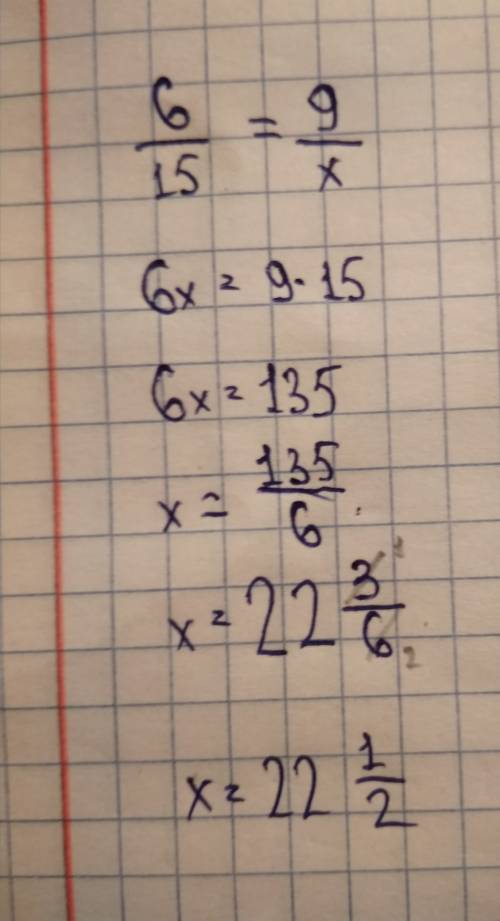 6/15 = 9/x
6x = 9·15
6x = 135
x = 135/6
x = 22 3/6 1 2
x = 22 1/2